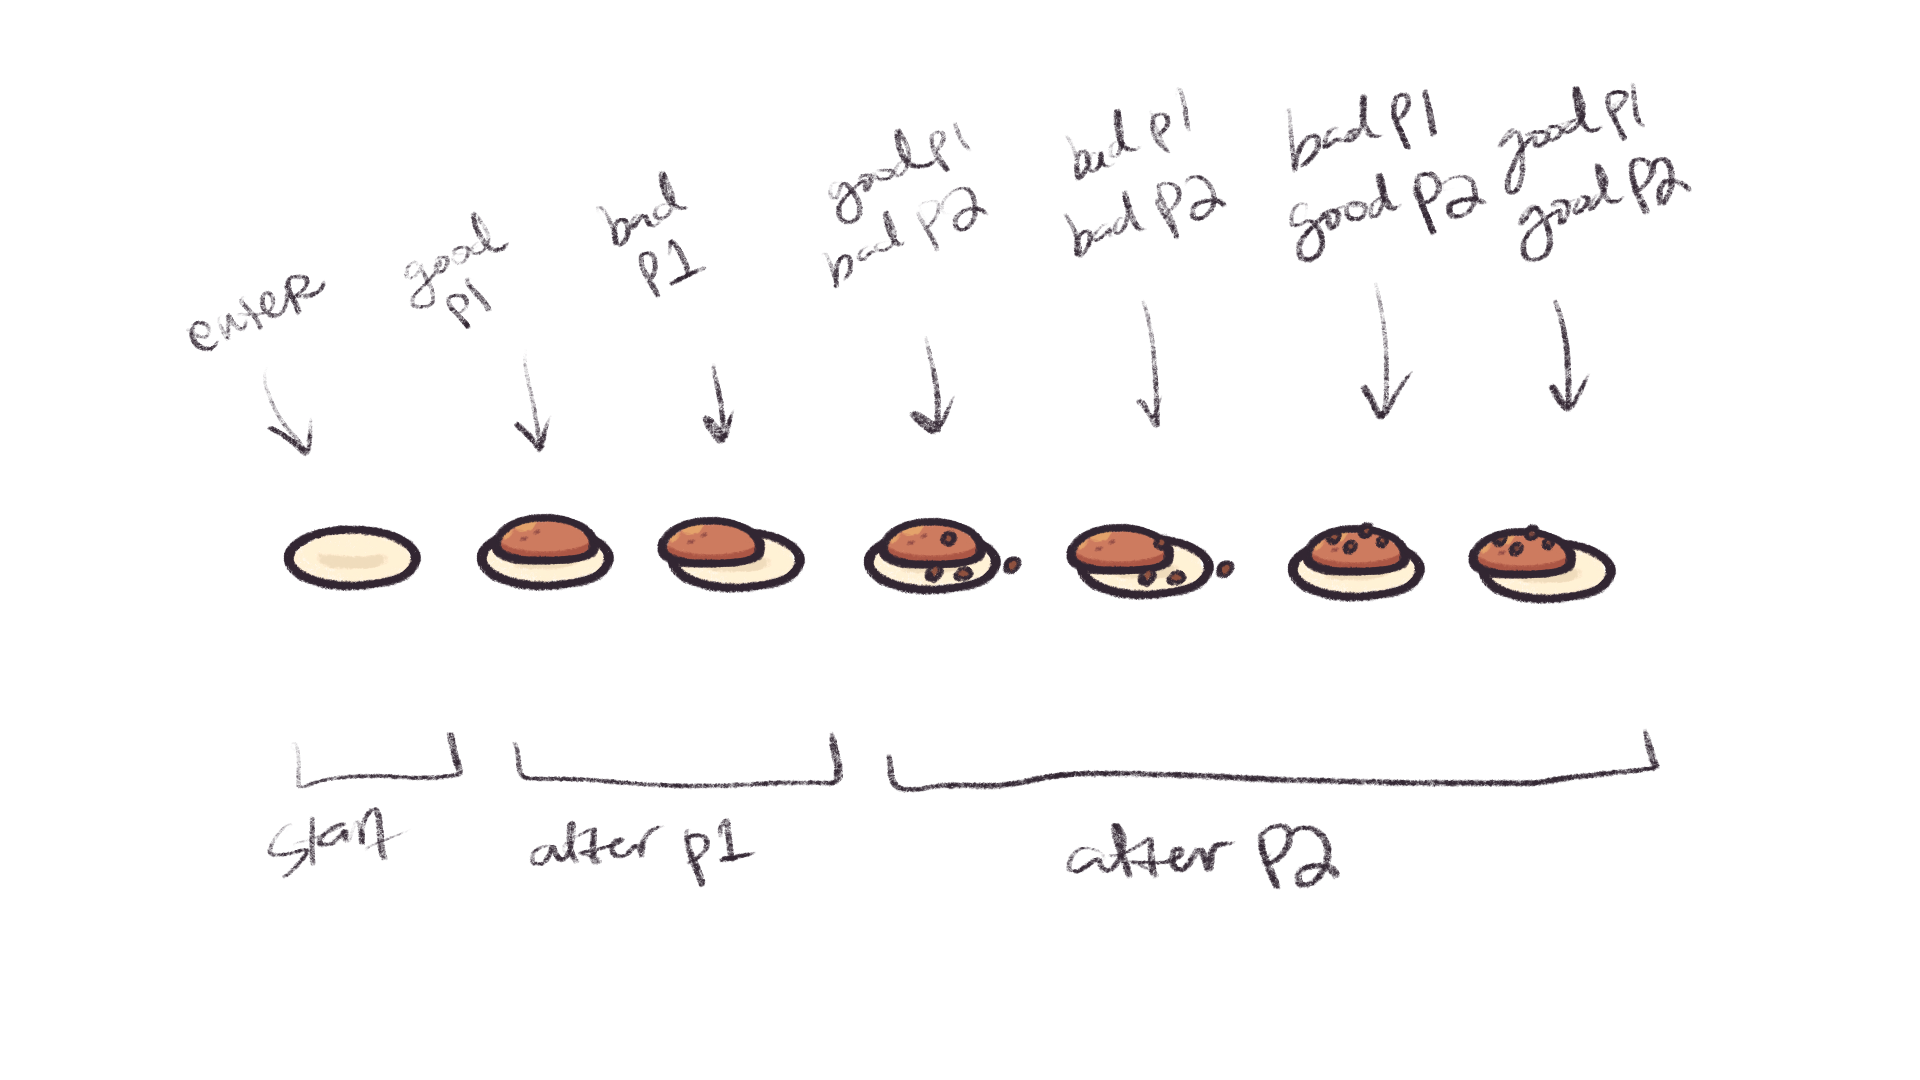 enter
good
p1
bad
p1
good p1
bad p2
bad p1
bad p2
bad p1
good p2
good p1
good p2
start
after p1
after p2